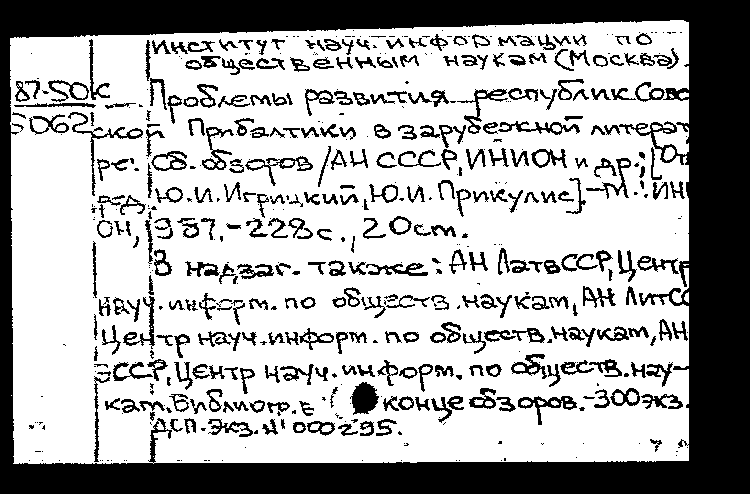 Институт науч. информации по
общественным наукам (Москва).
87-50к
5062
Проблемы развития республик Сове
ской Прибалтики в зарубежной литерат
ре: Сб. обзоров / АН СССР, ИНИОН и др.; [От
ред. Ю.И. Игрицкий, Ю.И. Прикулис]. - М.: ИНИ
ОН, 1987. - 228 с., 20 см.
В надзаг. также: АН ЛатвССР, Центр
науч. информ. по обществ. наукам, АН ЛитСС
Центр науч. информ. по обществ. наукам, АН
ЭССР, Центр науч. информ. по обществ. нау-
кам. Библиогр. в конце обзоров. - 300 экз.
ДСП. Экз. № 000295.